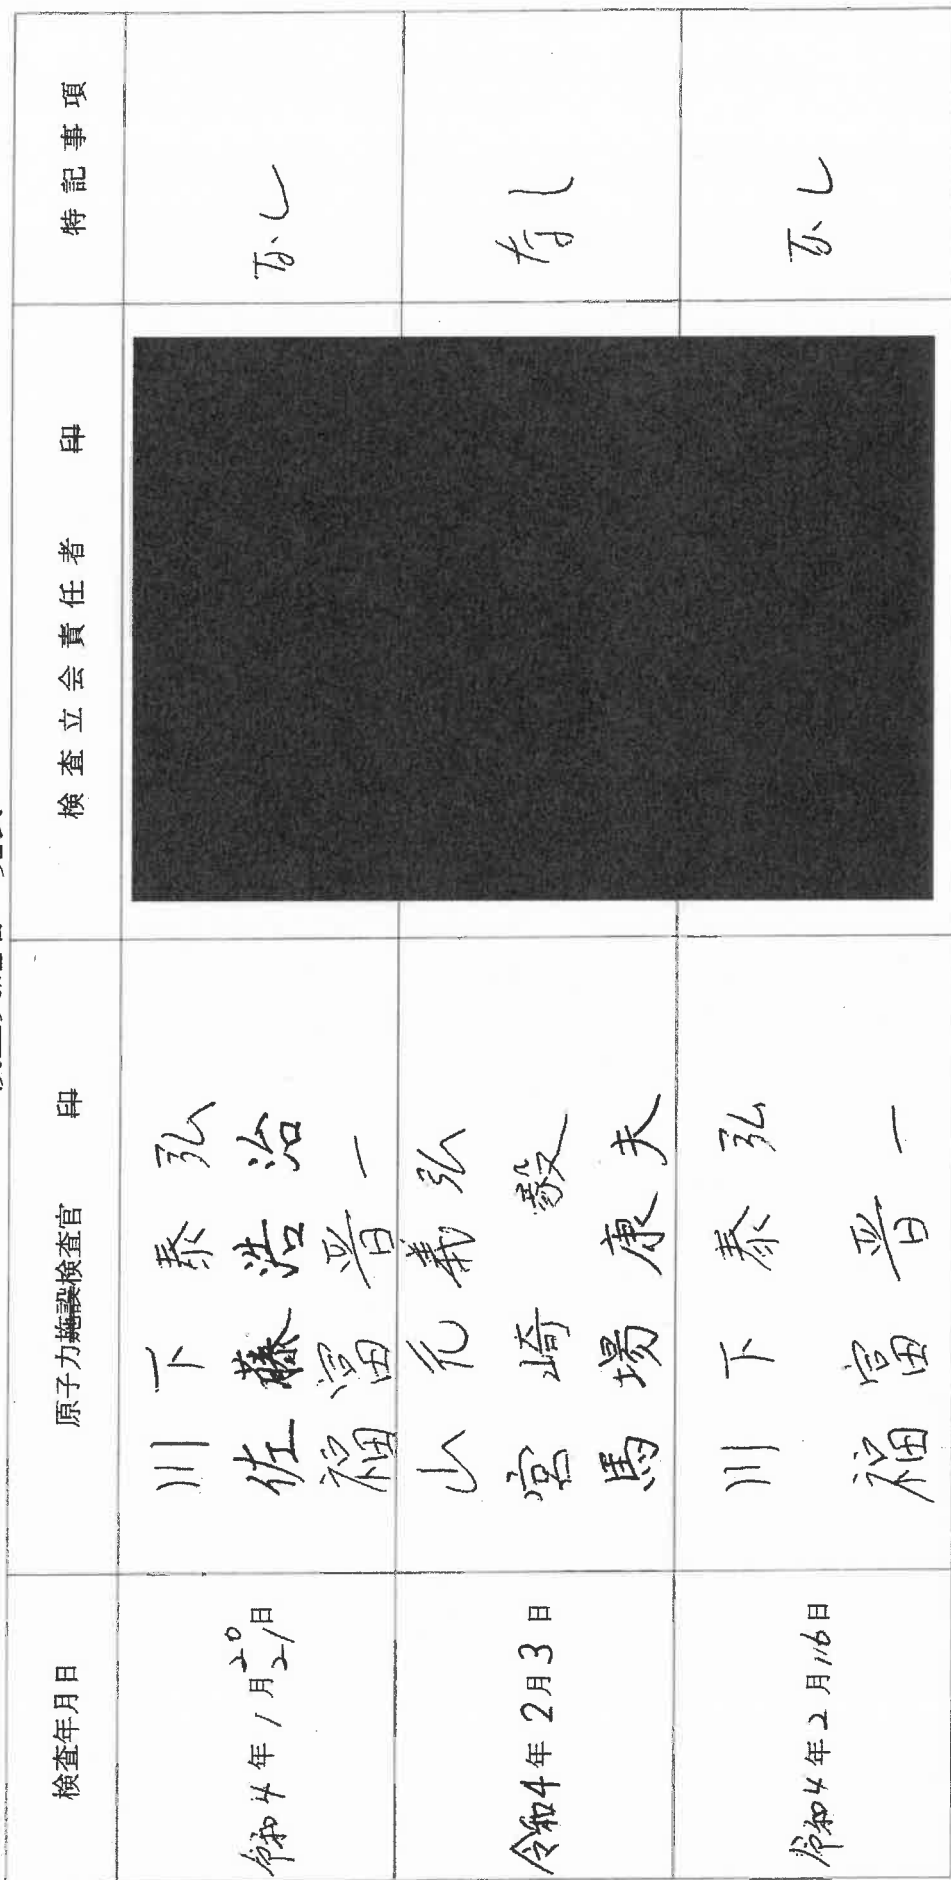 検査年月日 原子力施設検査官 印 検査立会責任者 印 特記事項
令和4年1月20 21日 川下泰弘 なし
佐藤浩治
福冨晋一
令和4年2月3日 山元義弘 なし
宮崎毅
馬場康夫
令和4年2月16日 川下泰弘 なし
福冨晋一